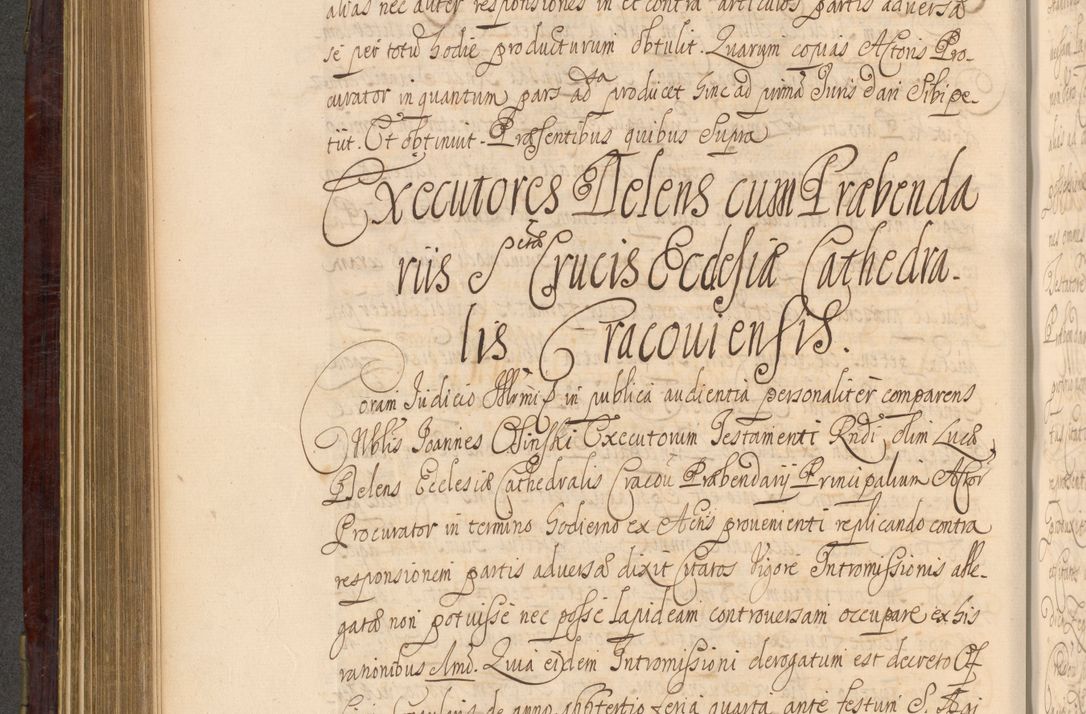 alias nec aliter responsiones in et contra articulos partis adversæ
se per totũ hodie producturum obtulit. Quarum copias Actoris Pro-
curator in quantum pars adᵛˢᵃ producet hinc ad primã Juris dari Sibi pe-
tiit. Et obtinuit. Præsentibus quibus Supra
Executores Delens cum Præbenda
riis Sctæ Crucis Ecclesiæ Cathedra-
lis Cracoviensis.
Coram Iudicio in publica audientia personaliter comparens
Nblis Ioannes Executorum Testamenti Rndi olim Lucæ
Delens Ecclesiæ Cathedralis Cracov Præbendarij Principalium Actor
Procurator in termino hodierno ex Actis provenienti replicando contra
responsionem partis adversæ dixit Citatos Vigore Intromissionis alle-
gatæ non potuisse nec posse lapideam controversam occupare ex his
rationibus Imo. Quia eidem Intromissioni derogatum est decreto Of
de anno feria quarta ante festum S.